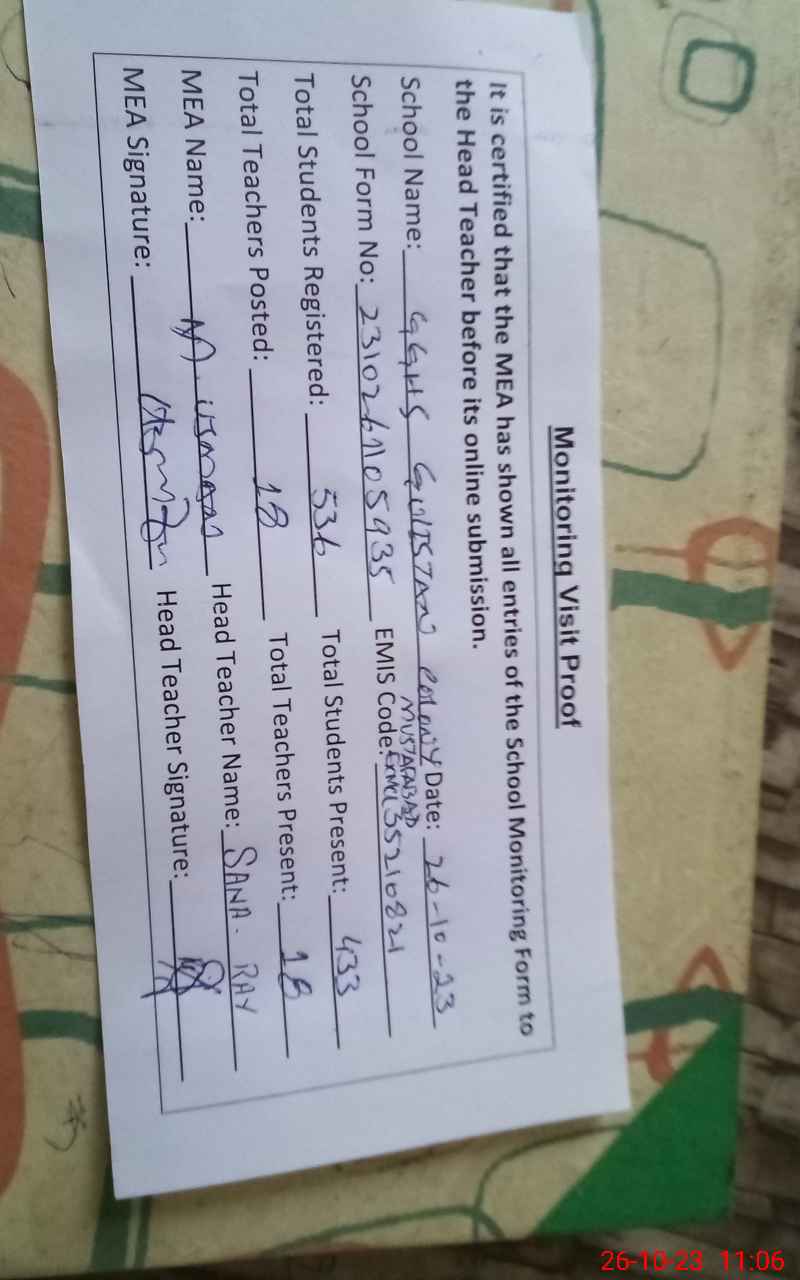 Monitoring Visit Proof
It is certified that the MEA has shown all entries of the School Monitoring Form to
the Head Teacher before its online submission.
School Name: GGHS GULISTAN COLONY Date: 26-10-23
MUSTAFABAD
School Form No: 2310261105935 EMIS Code: 35210821
Total Students Registered: 536 Total Students Present: 433
Total Teachers Posted: 18 Total Teachers Present: 18
MEA Name: M. USMAN Head Teacher Name: SANA. RAY
MEA Signature: Head Teacher Signature:
26-10-23 11:06